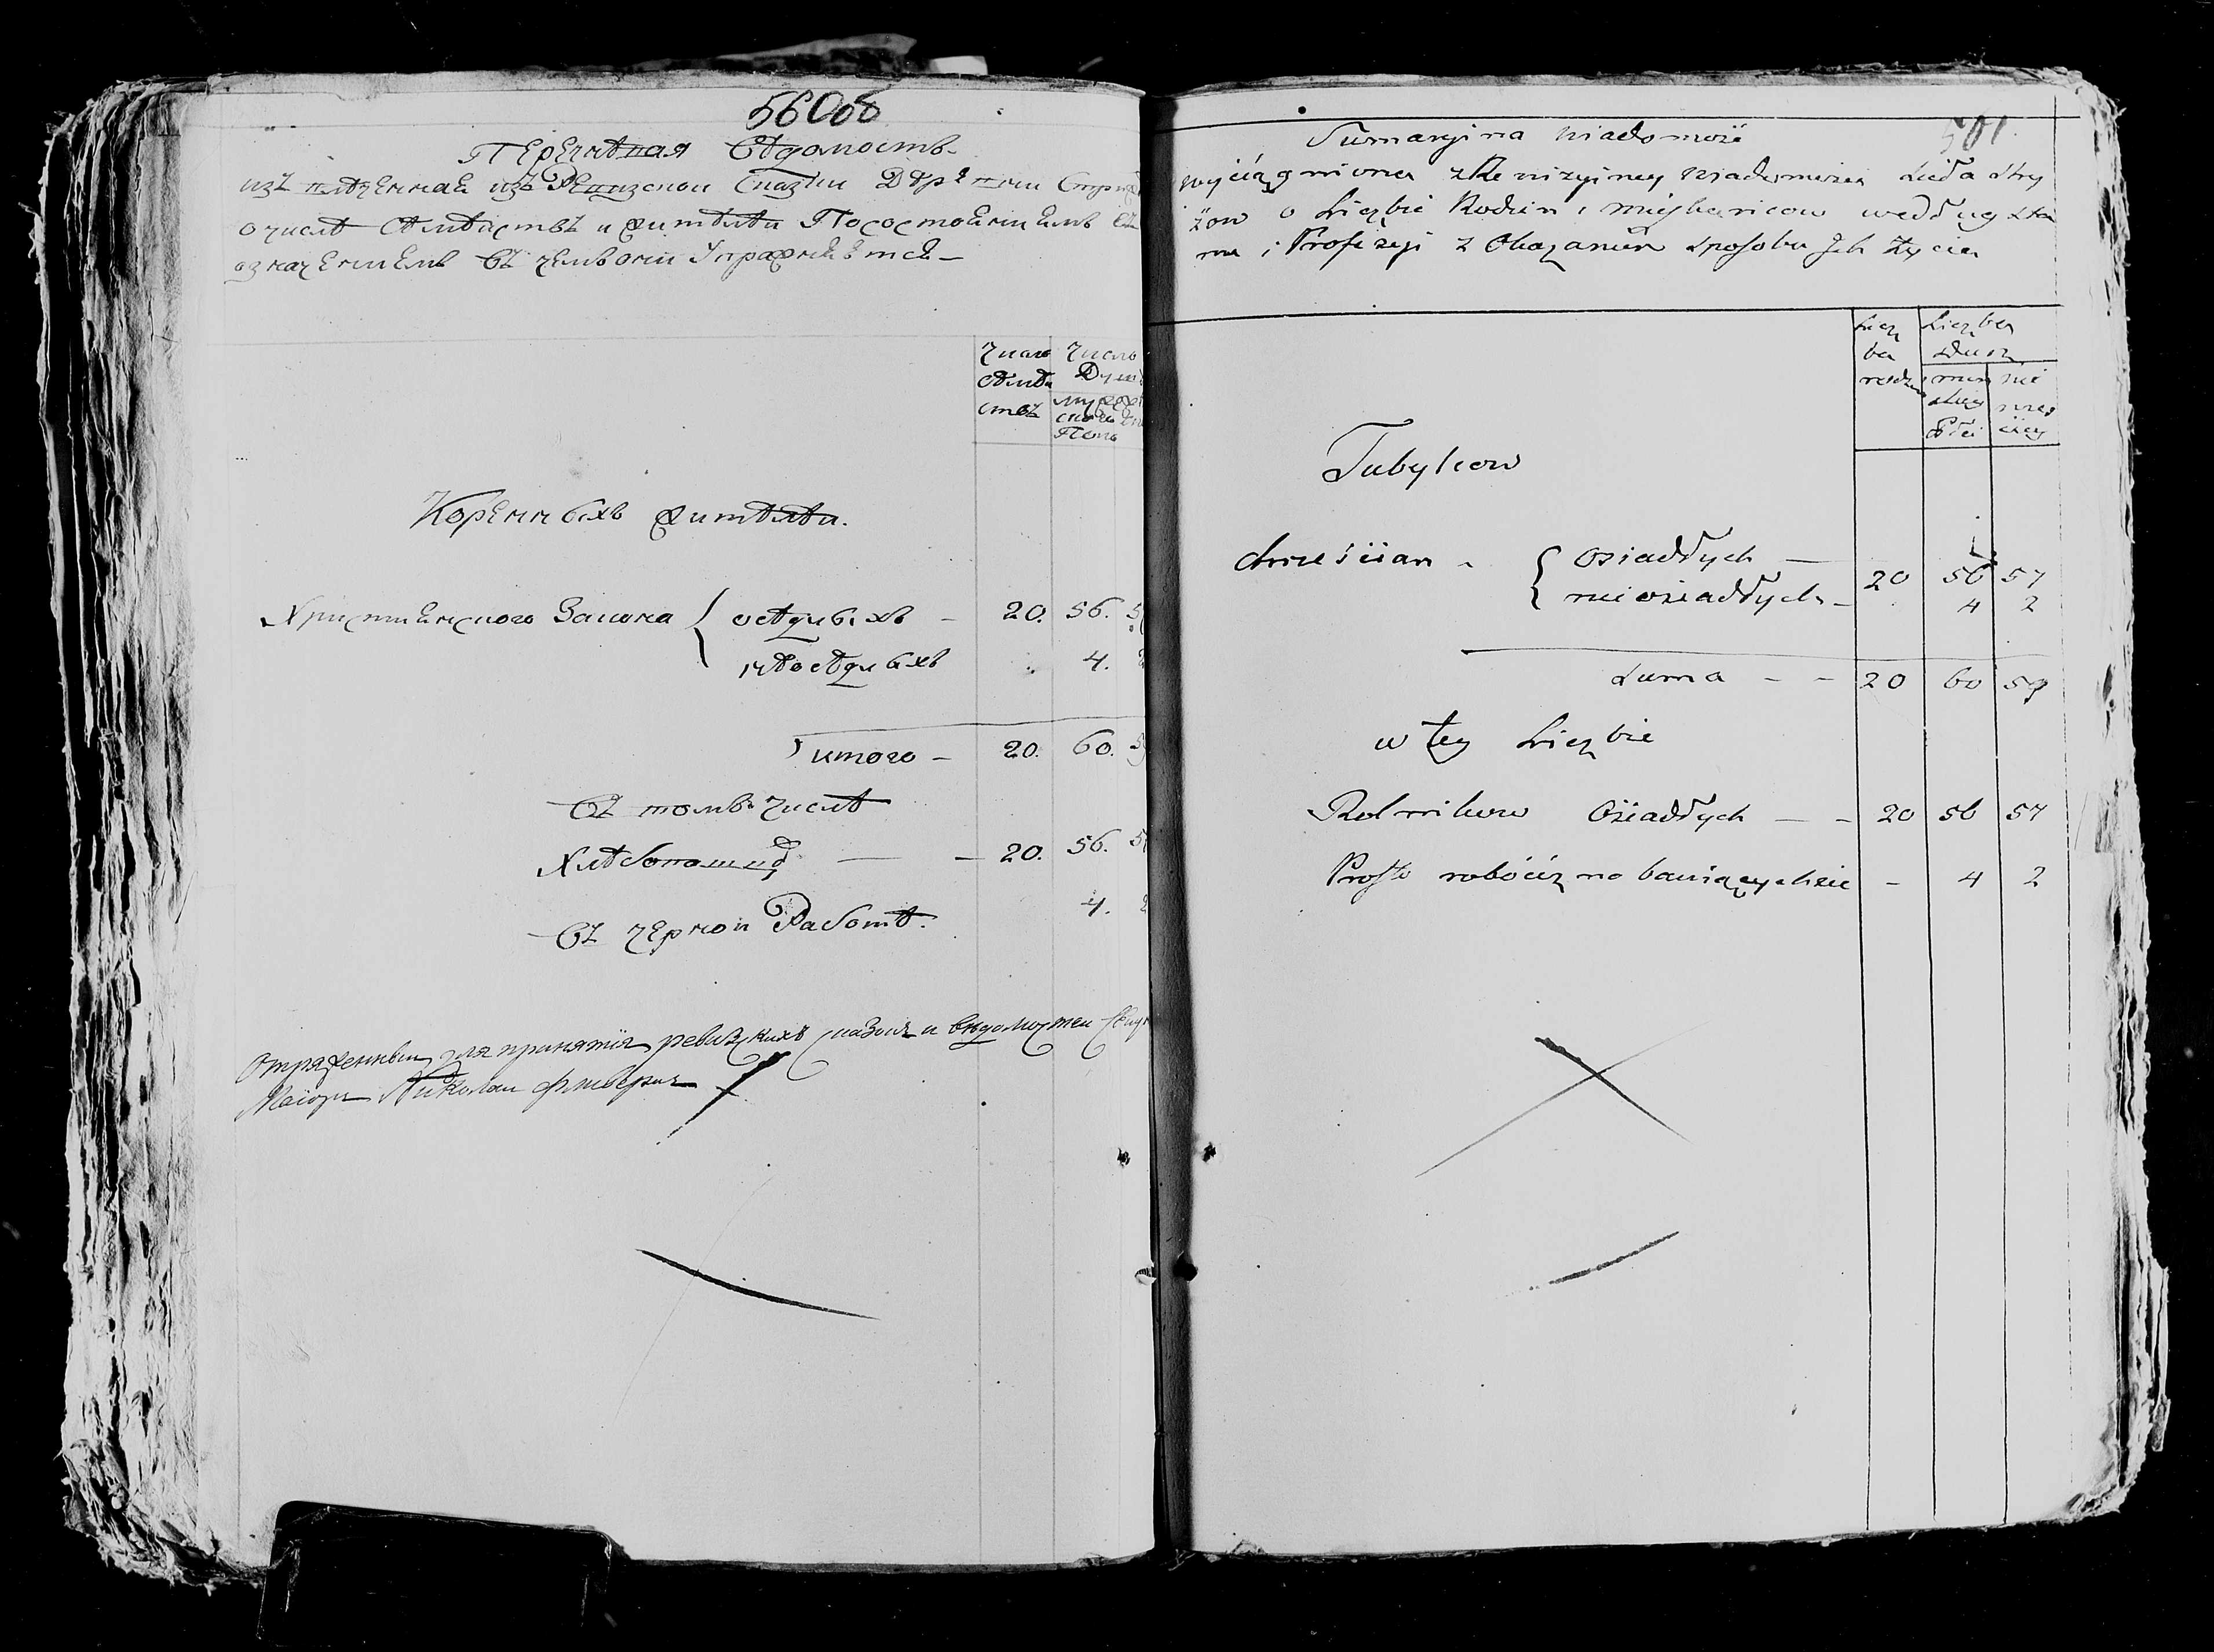 560об
Перечневая Ведомость
изъ влеченная изъ Ревизской Сказки Деревни
о числе Семействъ и жителей По состоянiемъ съ
означениемъ въ чемъ они Упражняются
Число Семействъ
Число Душъ
мужескаго Пола
Коренныхъ жителей.
Християнского Закона { оседлыхъ – 20. 56.
неоседлыхъ 4.
итого – 20. 60.
Въ томъ числе
Хлебопашцо — – 20. 56.
Въ черной Работе. 4.
Отряженный для принятiя ревизскихъ сказокъ и ведомостей
Маiоръ Николай
501
Sumaryina wiadomość
wyciągniona z Rewizyiney wiadomości Sioła Stry
żow o Liczbie Rodzin i mieszkancow według sta
nu i Profesyi z Okazaniem sposobu Ich życia
Licz
ba
rodzin
Liczba
dusz
męz
kiey
Płci
nie
wieś
ciey
Tubylcow
chrześcian { osiadłych — 20 56 57
nieosiadłych – 4 2
Suma – – 20 60 59
w tey Liczbie
Rolnikow Osiadłych — – 20 56 57
Prosto robocizno bawiących sie – 4 2